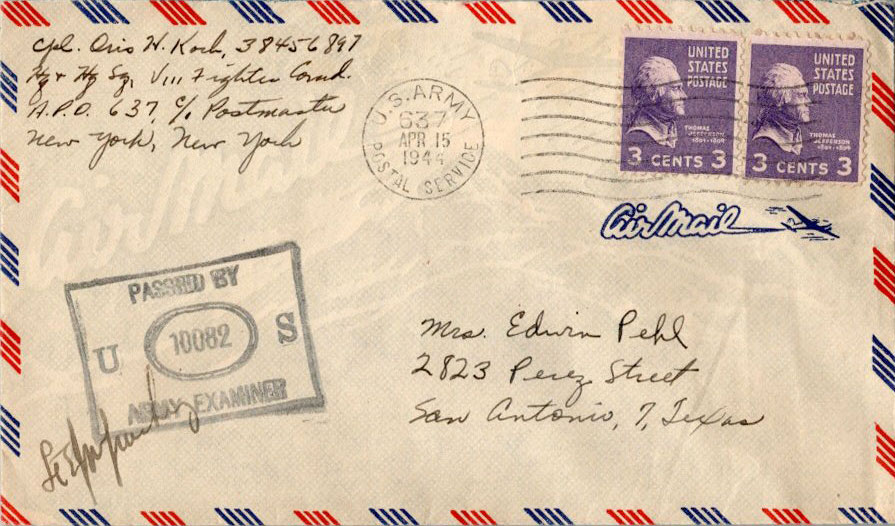 Cpl. Oris W. Koch, 38456897
Hq & Hq Sq. VIII Fighter Comd.
A.P.O. 637, c/o Postmaster
New York, New York
U.S. ARMY
637
APR 15
1944
POSTAL SERVICE
UNITED
STATES
POSTAGE
THOMAS
JEFFERSON
1801-1809
3 CENTS 3
UNITED
STATES
POSTAGE
THOMAS
JEFFERSON
1801-1809
3 CENTS 3
Air Mail
Air Mail
PASSED BY
U 10082 S
ARMY EXAMINER
Mrs. Edwin Pehl
2823 Perez Street
San Antonio, 7, Texas